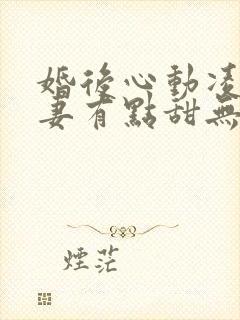 婚後心動凌
妻有點甜無
煙茫